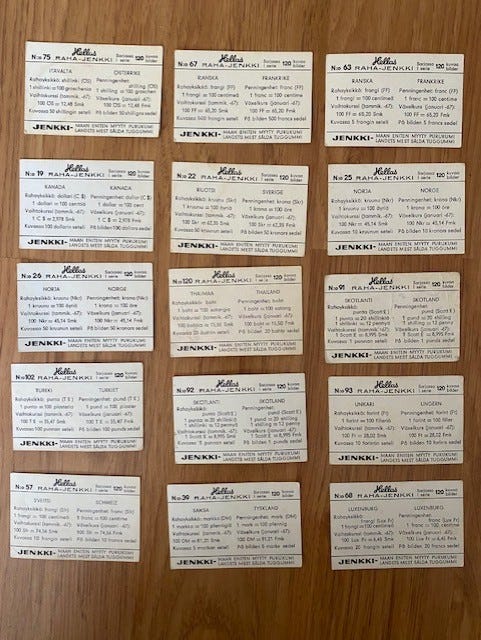 N:o 75 Hellas Sarjassa 120 kuvaa
RAHA-JENKKI I serie bilder
ITÄVALTA ÖSTERRIKE
Rahayksikkö: shillinki (ÖS) Penningenhet:
shilling (ÖS)
1 shilling = 100 groschen
Vaihtokurssi (tammik. -67): Växelkurs (januari -67):
100 ÖS = 12,48 Smk 100 ÖS = 12,48 Fmk
JENKKI- MAAN ENITEN MYYTY PURUKUMI
LANDETS MEST SÅLDA TUGGUMMI
N:o 67 Hellas Sarjassa 120 kuvaa
RAHA-JENKKI I serie bilder
RANSKA FRANKRIKE
Rahayksikkö: frangi (FF) Penningenhet: franc (FF)
1 frangi = 100 centimeä 1 franc = 100 centime
Vaihtokurssi (tammik. -67): Växelkurs (januari -67):
100 FF = 65,20 Smk 100 FF = 65,20 Fmk
Kuvassa 500 frangin seteli På bilden 500 francs sedel
JENKKI- MAAN ENITEN MYYTY PURUKUMI
LANDETS MEST SÅLDA TUGGUMMI
N:o 63 Hellas Sarjassa 120 kuvaa
RAHA-JENKKI I serie bilder
RANSKA FRANKRIKE
Rahayksikkö: frangi (FF) Penningenhet: franc (FF)
1 frangi = 100 centimeä 1 franc = 100 centime
Vaihtokurssi (tammik. -67): Växelkurs (januari -67):
100 FF = 65,20 Smk 100 FF = 65,20 Fmk
Kuvassa 5 frangin seteli På bilden 5 francs sedel
JENKKI- MAAN ENITEN MYYTY PURUKUMI
LANDETS MEST SÅLDA TUGGUMMI
N:o 19 Hellas Sarjassa 120 kuvaa
RAHA-JENKKI I serie bilder
KANADA KANADA
Rahayksikkö: dollari (C $) Penningenhet: dollar (C $)
1 dollari = 100 centiä 1 dollar = 100 cent
Vaihtokurssi (tammik. -67): Växelkurs (januari -67):
1 C $ = 2,978 Smk 1 C $ = 2,978 Fmk
Kuvassa 100 dollarin seteli På bilden 100 dollars sedel
JENKKI- MAAN ENITEN MYYTY PURUKUMI
LANDETS MEST SÅLDA TUGGUMMI
N:o 22 Hellas Sarjassa 120 kuvaa
RAHA-JENKKI I serie bilder
RUOTSI SVERIGE
Rahayksikkö: kruunu (Skr) Penningenhet: krona (Skr)
1 kruunu = 100 äyriä 1 krona = 100 öre
Vaihtokurssi (tammik. -67): Växelkurs (januari -67):
100 Skr = 62,35 Smk 100 Skr = 62,35 Fmk
Kuvassa 10 kruunun seteli På bilden 10 kronors sedel
JENKKI- MAAN ENITEN MYYTY PURUKUMI
LANDETS MEST SÅLDA TUGGUMMI
N:o 25 Hellas Sarjassa 120 kuvaa
RAHA-JENKKI I serie bilder
NORJA NORGE
Rahayksikkö: kruunu (Nkr) Penningenhet: krona (Nkr)
1 kruunu = 100 äyriä 1 krona = 100 öre
Vaihtokurssi (tammik. -67): Växelkurs (januari -67):
100 Nkr = 45,14 Smk 100 Nkr = 45,14 Fmk
Kuvassa 10 kruunun seteli På bilden 10 kronors sedel
JENKKI- MAAN ENITEN MYYTY PURUKUMI
LANDETS MEST SÅLDA TUGGUMMI
N:o 26 Hellas Sarjassa 120 kuvaa
RAHA-JENKKI I serie bilder
NORJA NORGE
Rahayksikkö: kruunu (Nkr) Penningenhet: krona (Nkr)
1 kruunu = 100 äyriä 1 krona = 100 öre
Vaihtokurssi (tammik. -67): Växelkurs (januari -67):
100 Nkr = 45,14 Smk 100 Nkr = 45,14 Fmk
Kuvassa 50 kruunun seteli På bilden 50 kronors sedel
JENKKI- MAAN ENITEN MYYTY PURUKUMI
LANDETS MEST SÅLDA TUGGUMMI
N:o 120 Hellas Sarjassa 120 kuvaa
RAHA-JENKKI I serie bilder
THAIMAA THAILAND
Rahayksikkö: baht Penningenhet: baht
1 baht = 100 satangia 1 baht = 100 satang
Vaihtokurssi (tammik. -67): Växelkurs (januari -67):
Kuvassa 20 bahtin seteli På bilden 20 bahts sedel
JENKKI- MAAN ENITEN MYYTY PURUKUMI
LANDETS MEST SÅLDA TUGGUMMI
N:o 91 Hellas Sarjassa 120 kuvaa
RAHA-JENKKI I serie bilder
SKOTLANTI SKOTLAND
Rahayksikkö: Penningenhet:
punta (Scot £) pund (Scot £)
1 punta = 20 shillingiä 1 pund = 20 shilling
1 shillinki = 12 pennyä 1 shilling = 12 penny
Vaihtokurssi (tammik. -67): Växelkurs (januari -67):
JENKKI- MAAN ENITEN MYYTY PURUKUMI
LANDETS MEST SÅLDA TUGGUMMI
N:o 102 Hellas Sarjassa 120 kuvaa
RAHA-JENKKI I serie bilder
TURKKI TURKIET
Rahayksikkö: punta (T £) Penningenhet: pund (T £)
1 punta = 100 piasteria 1 pund = 100 piaster
Vaihtokurssi (tammik. -67): Växelkurs (januari -67):
100 T £ = 35,47 Smk 100 T £ = 35,47 Fmk
Kuvassa 100 punnan seteli På bilden 100 punds sedel
JENKKI- MAAN ENITEN MYYTY PURUKUMI
LANDETS MEST SÅLDA TUGGUMMI
N:o 92 Hellas Sarjassa 120 kuvaa
RAHA-JENKKI I serie bilder
SKOTLANTI SKOTLAND
Rahayksikkö: Penningenhet:
punta (Scot £) pund (Scot £)
1 punta = 20 shillingiä 1 pund = 20 shilling
1 shillinki = 12 pennyä 1 shilling = 12 penny
Vaihtokurssi (tammik. -67): Växelkurs (januari -67):
1 Scot £ = 8,995 Smk 1 Scot £ = 8,995 Fmk
JENKKI- MAAN ENITEN MYYTY PURUKUMI
LANDETS MEST SÅLDA TUGGUMMI
N:o 93 Hellas Sarjassa 120 kuvaa
RAHA-JENKKI I serie bilder
UNKARI UNGERN
Rahayksikkö: forint (Ft) Penningenhet: forint (Ft)
1 forint = 100 filleriä 1 forint = 100 filler
Vaihtokurssi (tammik. -67): Växelkurs (januari -67):
100 Ft = 28,02 Smk 100 Ft = 28,02 Fmk
Kuvassa 10 forintin seteli På bilden 10 forints sedel
JENKKI- MAAN ENITEN MYYTY PURUKUMI
LANDETS MEST SÅLDA TUGGUMMI
N:o 57 Hellas Sarjassa 120 kuvaa
RAHA-JENKKI I serie bilder
SVEITSI SCHWEIZ
Rahayksikkö: frangi (Sfr) Penningenhet: franc (Sfr)
1 frangi = 100 centimeä 1 franc = 100 centime
Vaihtokurssi (tammik. -67): Växelkurs (januari -67):
100 Sfr = 74,56 Smk 100 Sfr = 74,56 Fmk
Kuvassa 10 frangin seteli På bilden 10 francs sedel
JENKKI- MAAN ENITEN MYYTY PURUKUMI
LANDETS MEST SÅLDA TUGGUMMI
N:o 39 Hellas Sarjassa 120 kuvaa
RAHA-JENKKI I serie bilder
SAKSA TYSKLAND
Rahayksikkö: markka (DM) Penningenhet: mark (DM)
1 markka = 100 pfennigiä 1 mark = 100 pfennig
Vaihtokurssi (tammik. -67): Växelkurs (januari -67):
100 DM = 81,21 Smk 100 DM = 81,21 Fmk
Kuvassa 5 markan seteli På bilden 5 marks sedel
JENKKI- MAAN ENITEN MYYTY PURUKUMI
LANDETS MEST SÅLDA TUGGUMMI
N:o 68 Hellas Sarjassa 120 kuvaa
RAHA-JENKKI I serie bilder
LUXEMBURG LUXEMBURG
Rahayksikkö: Penningenhet:
frangi (Lux Fr) franc (Lux Fr)
1 frangi = 100 centimeä 1 franc = 100 centime
Vaihtokurssi (tammik. -67): Växelkurs (januari -67):
100 Lux Fr = 6,45 Smk 100 Lux Fr = 6,45 Fmk
Kuvassa 20 frangin seteli På bilden 20 francs sedel
JENKKI- MAAN ENITEN MYYTY PURUKUMI
LANDETS MEST SÅLDA TUGGUMMI